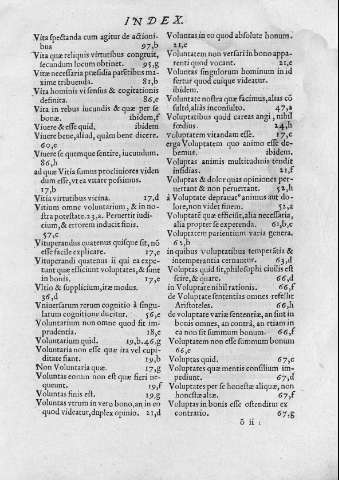 INDEX.
Vita spectanda cum agitur de actioni-
bus 97,b
Vita quæ reliquis virtutibus congruit,
secundum locum obtinet. 95,g
Vitæ necessaria præsidia parẽtibus ma-
xime tribuenda. 81,b
Vita hominis visensus & cogitationis
definita. 86,e
Vita in rebus iucundis & quæ per se
bonæ. ibidem,f
Viuere & esse quid. ibidem
Viuere bene, aliud, quàm bene dicere.
60,e
Viuere se quemque sentire, iucundum.
86,h
ad quæ Vitia simus procliuiores viden
dum esse, vt ea vitare possimus.
17,b
Vitia virtutibus vicina. 17,d
Vitium omne voluntarium, & in no-
stra potestate. 23,a. Peruertit iudi-
cium, & errorem inducit finis.
57,e
Vituperandus quatenus quisque sit, nō
esse facile explicare. 17,e
Vituperandi quatenus ii qui ea expe-
tunt quæ efficiunt voluptates, & sunt
in bonis. 17,e
Vltio & supplicium, iræ modus.
36,d
Vniuersarum rerum cognitio à singu-
larum cognitione ducitur. 56,e
Voluntarium non omne quod fit im-
prudentia. 18,e
Voluntarium quid. 19,b.46,g
Voluntaria non esse quæ ira vel cupi-
ditate fiant. 19,b
Non Voluntaria quæ. 17,g
Voluntas eorum non est quæ fieri ne-
queunt. 19,f
Voluntas finis est. 19,g
Voluntas vtrum in vero bono, an in eo
quod videatur, duplex opinio. 21,d
Voluntas in eo quod absolute bonum.
21,e
Voluntatem non versari in bono appa-
renti quod vocant. 21,e
Voluntas singulorum hominum in id
fertur quod cuique videatur.
ibidem.
Voluntate nostra quæ facimus, alias cō
sultò, aliàs inconsulto. 47,a
Voluptatibus quod careas angi, nihil
fœdius. 24,h
voluptatem vitandam esse. 17,e
erga Voluptatem quo animo esse de-
bemus. ibidem.
Voluptas animis multitudinis tendit
insidias. 21,f
Voluptas & dolor quas opiniones per-
uertant & non peruertant. 52,h
à Voluptate deprauatꝰ animus aut do-
lore, non videt finem. 52,a
Voluptatē quæ efficiūt, alia necessaria,
alia propter se expetenda. 61,b,c
Voluptatem parientium varia genera.
62,b
in quibus voluptatibus temperātia &
intemperantia cernantur. 63,d
Voluptas quid sit, philosophi ciuilis est
scire, & quare. 66,d
in Voluptate nihil rationis. 66,f
de Voluptate sententias omnes refellit
Aristoteles. 66,h
de voluptate variæ sententiæ, an sint in
bonis omnes, an contrà, an etiam in
ea non sit summum bonum. 66,f
Voluptatem non esse summum bonum
66,e
Voluptas quid. 67,c
Voluptates quæ mentis consilium im-
pediunt. 67,d
Voluptates per se honestæ aliquæ, non
honestæ aliæ. 67,f
Voluptas in bonis esse ostenditur ex
contrario. 67,g
õ ii :